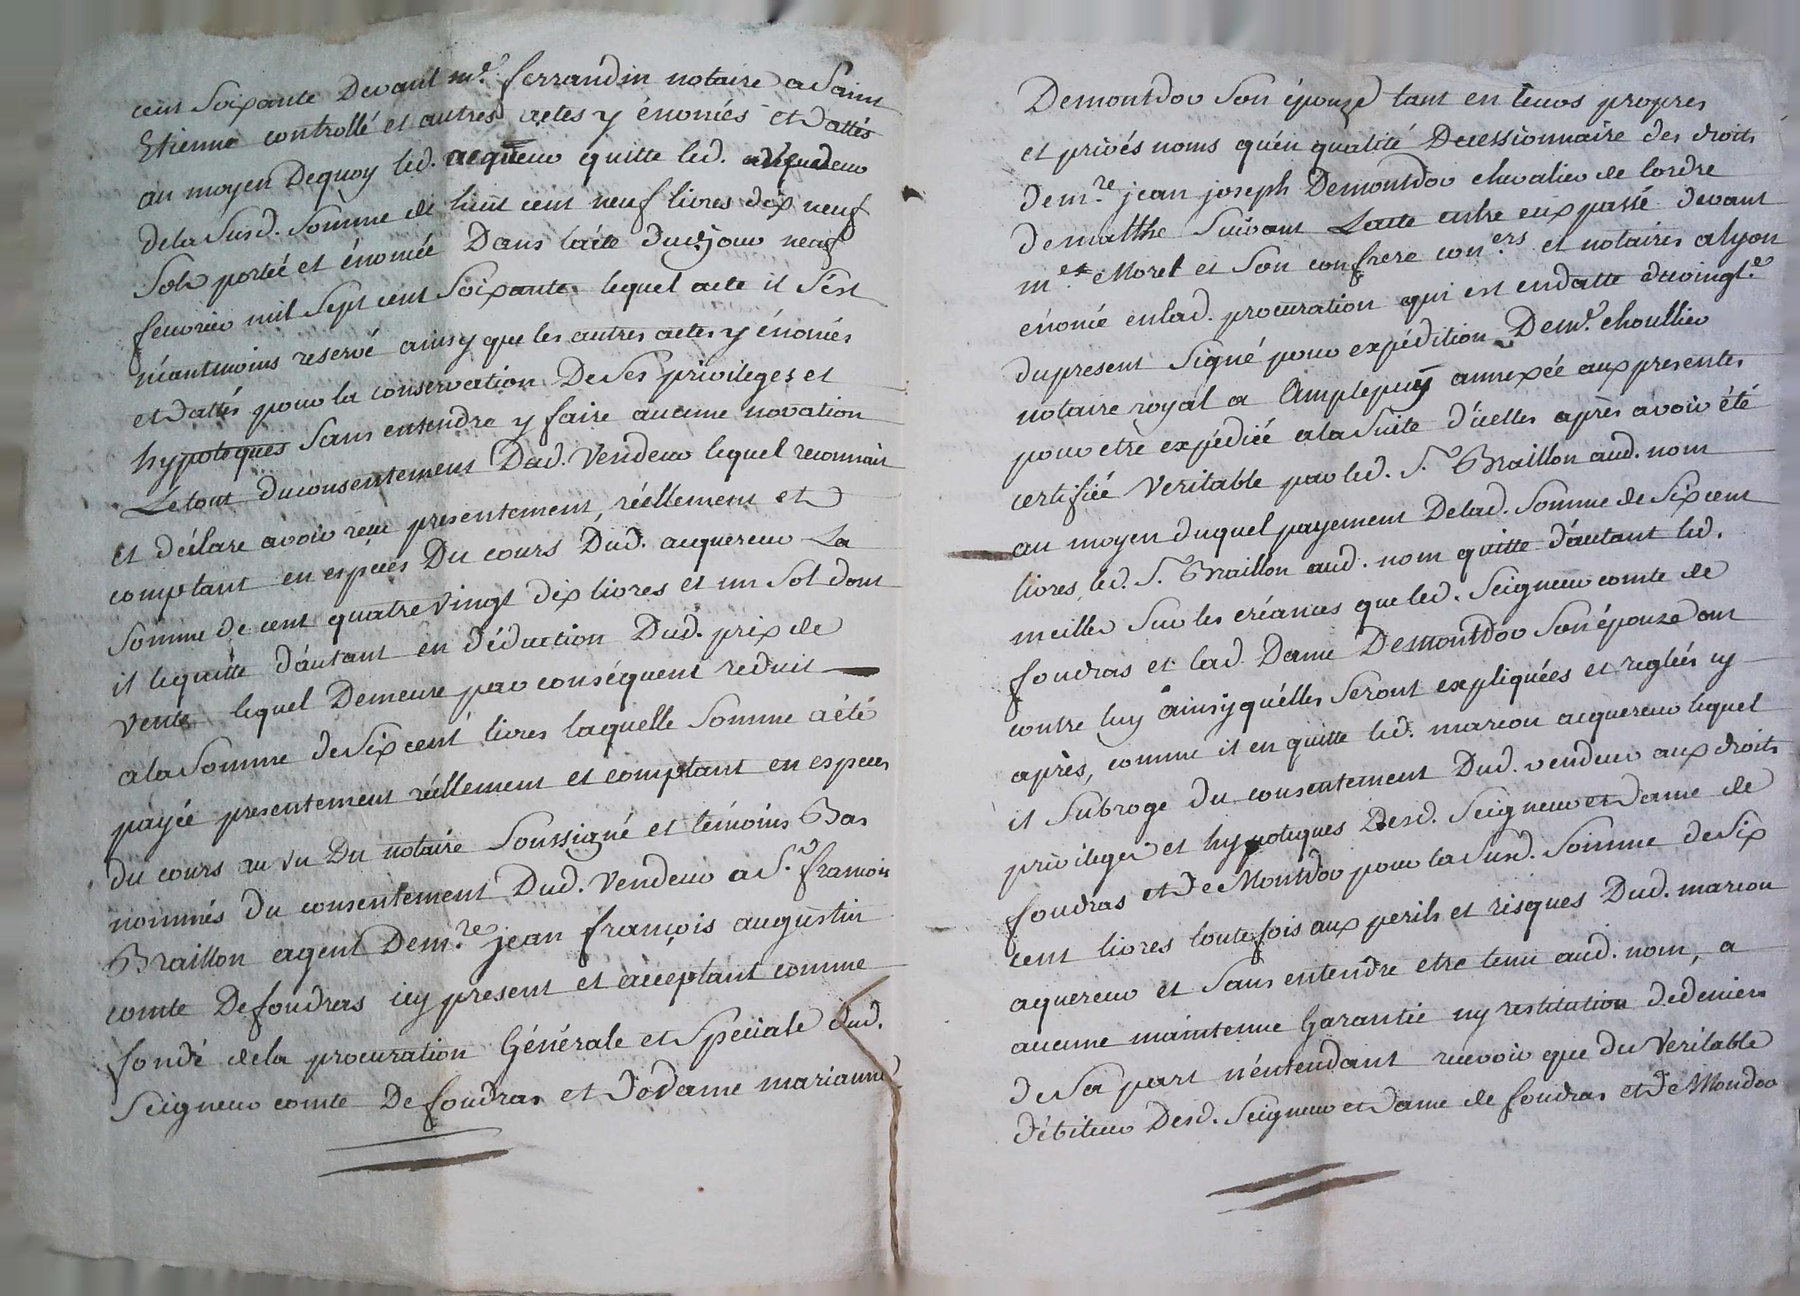 cent Soixante Devant me. ferrandin notaire a Saint
Etienne controllé et autres actes y énoncés et dattés
au moyen Dequoy led. acquereur quitte led. vendeur
dela Susd. Somme de huit cent neuf livres dix neuf
Sols portée et énoncée Dans lacte du jour neuf
fevrier mil Sept cent Soixante lequel acte il S'est
néantmoins reservé ainsy que les autres actes y énoncés
et dattés pour la conservation De Ses privileges et
hypoteques Sans entendre y faire aucune novation
Le tout du consentement Dud. Vendeur lequel reconnait
et déclare avoir reçu presentement, réellement et
comptant en especes Du cours Dud. acquereur La
Somme de cent quatre Vingt dix livres et un Sol dont
il le quitte d'autant en déduction Dud. prix de
Vente lequel Demeure par conséquent reduit
a la Somme de Six cent livres laquelle Somme a été
payée presentement réellement et comptant en especes
du cours au vu Du notaire Soussigné et témoins Bas
nommés du consentement Dud. Vendeur a Sr. francois
Braillon agent De mre. jean françois augustin
comte De foudras icy present et acceptant comme
fondé de la procuration Générale et Speciale dud.
Seigneur comte De foudras et de dame marianne
Demontdor Son épouze tant en leurs propres
et privés noms qu'en qualité De cessionnaire des droits
de mre. jean joseph Demontdor chevalier de lordre
de malthe Suivant Lacte entre eux passé devant
mes. Morel et Son confrere coners. et notaires a lyon
énoncé en lad. procuration qui est en datte du vingt e
du present Signé pour expédition De me. choullier
notaire royal a Amplepuis annexée aux presentes
pour etre expédiée a la Suite d'icelles après avoir été
certifiée Veritable par led. Sr. Braillon aud. nom
au moyen duquel payement De lad. Somme de Six cent
livres, led. Sr. Braillon aud. nom quitte d'autant led.
meiller Sur les créances que led. Seigneur comte de
foudras et lad. Dame Demontdor Son épouze ont
contre luy ainsy qu'elles Seront expliquées et reglées cy
après, comme il en quitte led. marcou acquereur lequel
il Subroge du consentement Dud. vendeur aux droits
privileges et hypoteques Desd. Seigneur et dame de
foudras et de Montdor pour la Susd. Somme de Six
cent livres toutefois aux perils et risques Dud. marcou
aquereur et Sans entendre etre tenu aud. nom, a
aucune maintenue Garantie ny restitution de deniers
de Sa part n'entendant recevoir que du Veritable
débiteur Desd. Seigneur et dame de foudras et de Mondor